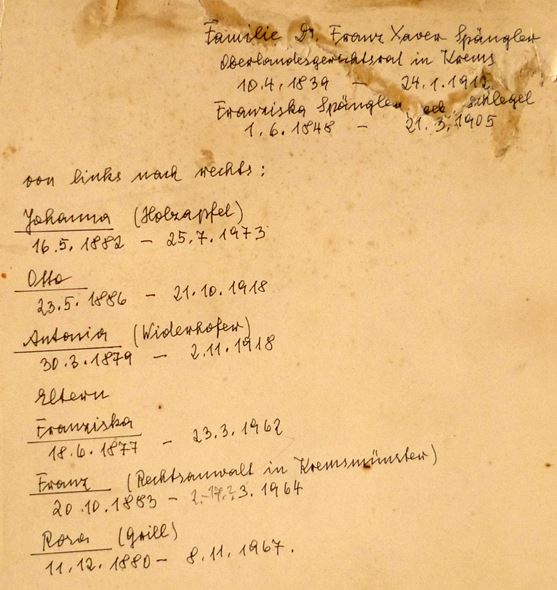 Familie Dr. Franz Xaver Spängler
Oberlandesgerichtsrat in Krems
10.4.1839 – 24.1.1912
Franziska Spängler geb. Schlegel
1.6.1848 – 21.3.1905
von links nach rechts:
Johanna (Holzapfel)
16.5.1882 – 25.7.1973
Otto
23.5.1886 – 21.10.1918
Antonia (Widerhofer)
30.3.1879 – 2.11.1918
Eltern
Franziska
18.6.1877 – 23.3.1962
Franz (Rechtsanwalt in Kremsmünster)
20.10.1883 – 3.1964
Rosa (Grill)
11.12.1880 – 8.11.1967.